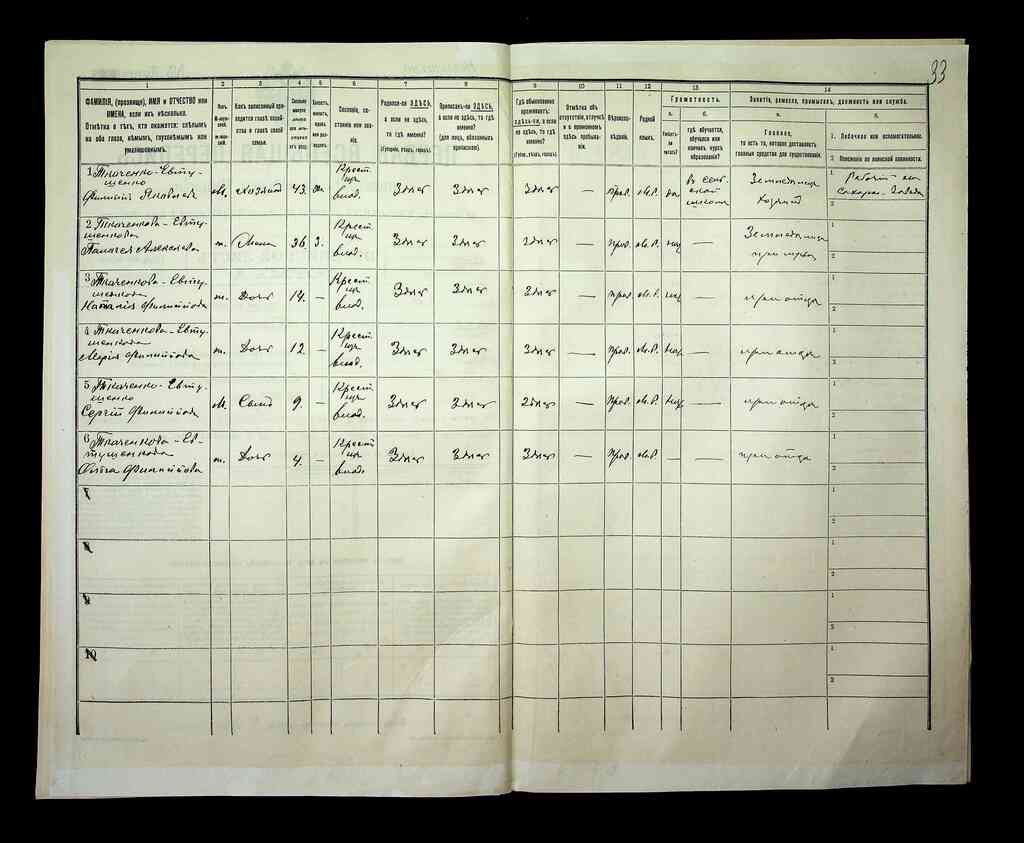 33
1 2 3 4 5 6 7 8 9 10 11 12 13 14
ФАМИЛІЯ, (прозвище), ИМЯ и ОТЧЕСТВО или
ИМЕНА, если ихъ нѣсколько.
Отмѣтка о тѣхъ, кто окажется: слѣпымъ
на оба глаза, нѣмымъ, глухонѣмымъ или
умалишеннымъ.
Полъ.
Какъ записанный приходится главѣ хозяйства и главѣ своей
семьи.
Сословіе, состояніе или званіе.
Родился-ли ЗДѢСЬ,
а если не здѣсь,
то гдѣ именно?
(Губернія, уѣздъ, городъ).
Приписанъ-ли ЗДѢСЬ,
а если не здѣсь, то гдѣ
именно?
(для лицъ, обязанныхъ
припискою).
Гдѣ обыкновенно
проживаетъ:
здѣсь-ли, а если
не здѣсь, то гдѣ
именно?
(Губ., уѣздъ, городъ).
Отмѣтка объ
отсутствіи, отлучкѣ
и о временномъ
здѣсь пребываніи.
Вѣроисповѣданіе.
Родной
языкъ.
Грамотность.
а. б.
Умѣетъ-ли
читать?
гдѣ обучается,
обучался или
кончилъ курсъ
образованія?
Занятіе, ремесло, промыселъ, должность или служба.
а. б.
Главное,
то есть то, которое доставляетъ
главныя средства для существованія.
1. Побочное или вспомогательное.
2. Положеніе по воинской повинности.
1 Ткаченко-Евтушенко
Филиппъ Яковлевъ
м. Хозяинъ 43. Крест. влад. Здѣсь Здѣсь Здѣсь — Прав. М.Р. да въ сельской школѣ Земледѣлецъ хозяинъ
1 Рабочій на сахарн. заводѣ
2
2 Ткаченкова-Евтушенкова
Пелагея Алексѣева
ж. Жена 36. 3. Крест. влад. Здѣсь Здѣсь Здѣсь — Прав. М.Р. нѣтъ — Земледѣлица при мужѣ
1
2
3 Ткаченкова-Евтушенкова
Наталія Филиппова
ж. Дочь 14. — Крест. влад. Здѣсь Здѣсь Здѣсь — Прав. М.Р. нѣтъ — при отцѣ
1
2
4 Ткаченкова-Евтушенкова
Марія Филиппова
ж. Дочь 12. — Крест. влад. Здѣсь Здѣсь Здѣсь — Прав. М.Р. нѣтъ — при отцѣ
1
2
5 Ткаченко-Евтушенко
Сергѣй Филипповъ
м. Сынъ 9. — Крест. влад. Здѣсь Здѣсь Здѣсь — Прав. М.Р. нѣтъ — при отцѣ
1
2
6 Ткаченкова-Евтушенкова
Ольга Филиппова
ж. Дочь 4. — Крест. влад. Здѣсь Здѣсь Здѣсь — Прав. М.Р. — — при отцѣ
1
2
7
1
2
8
1
2
9
1
2
10
1
2